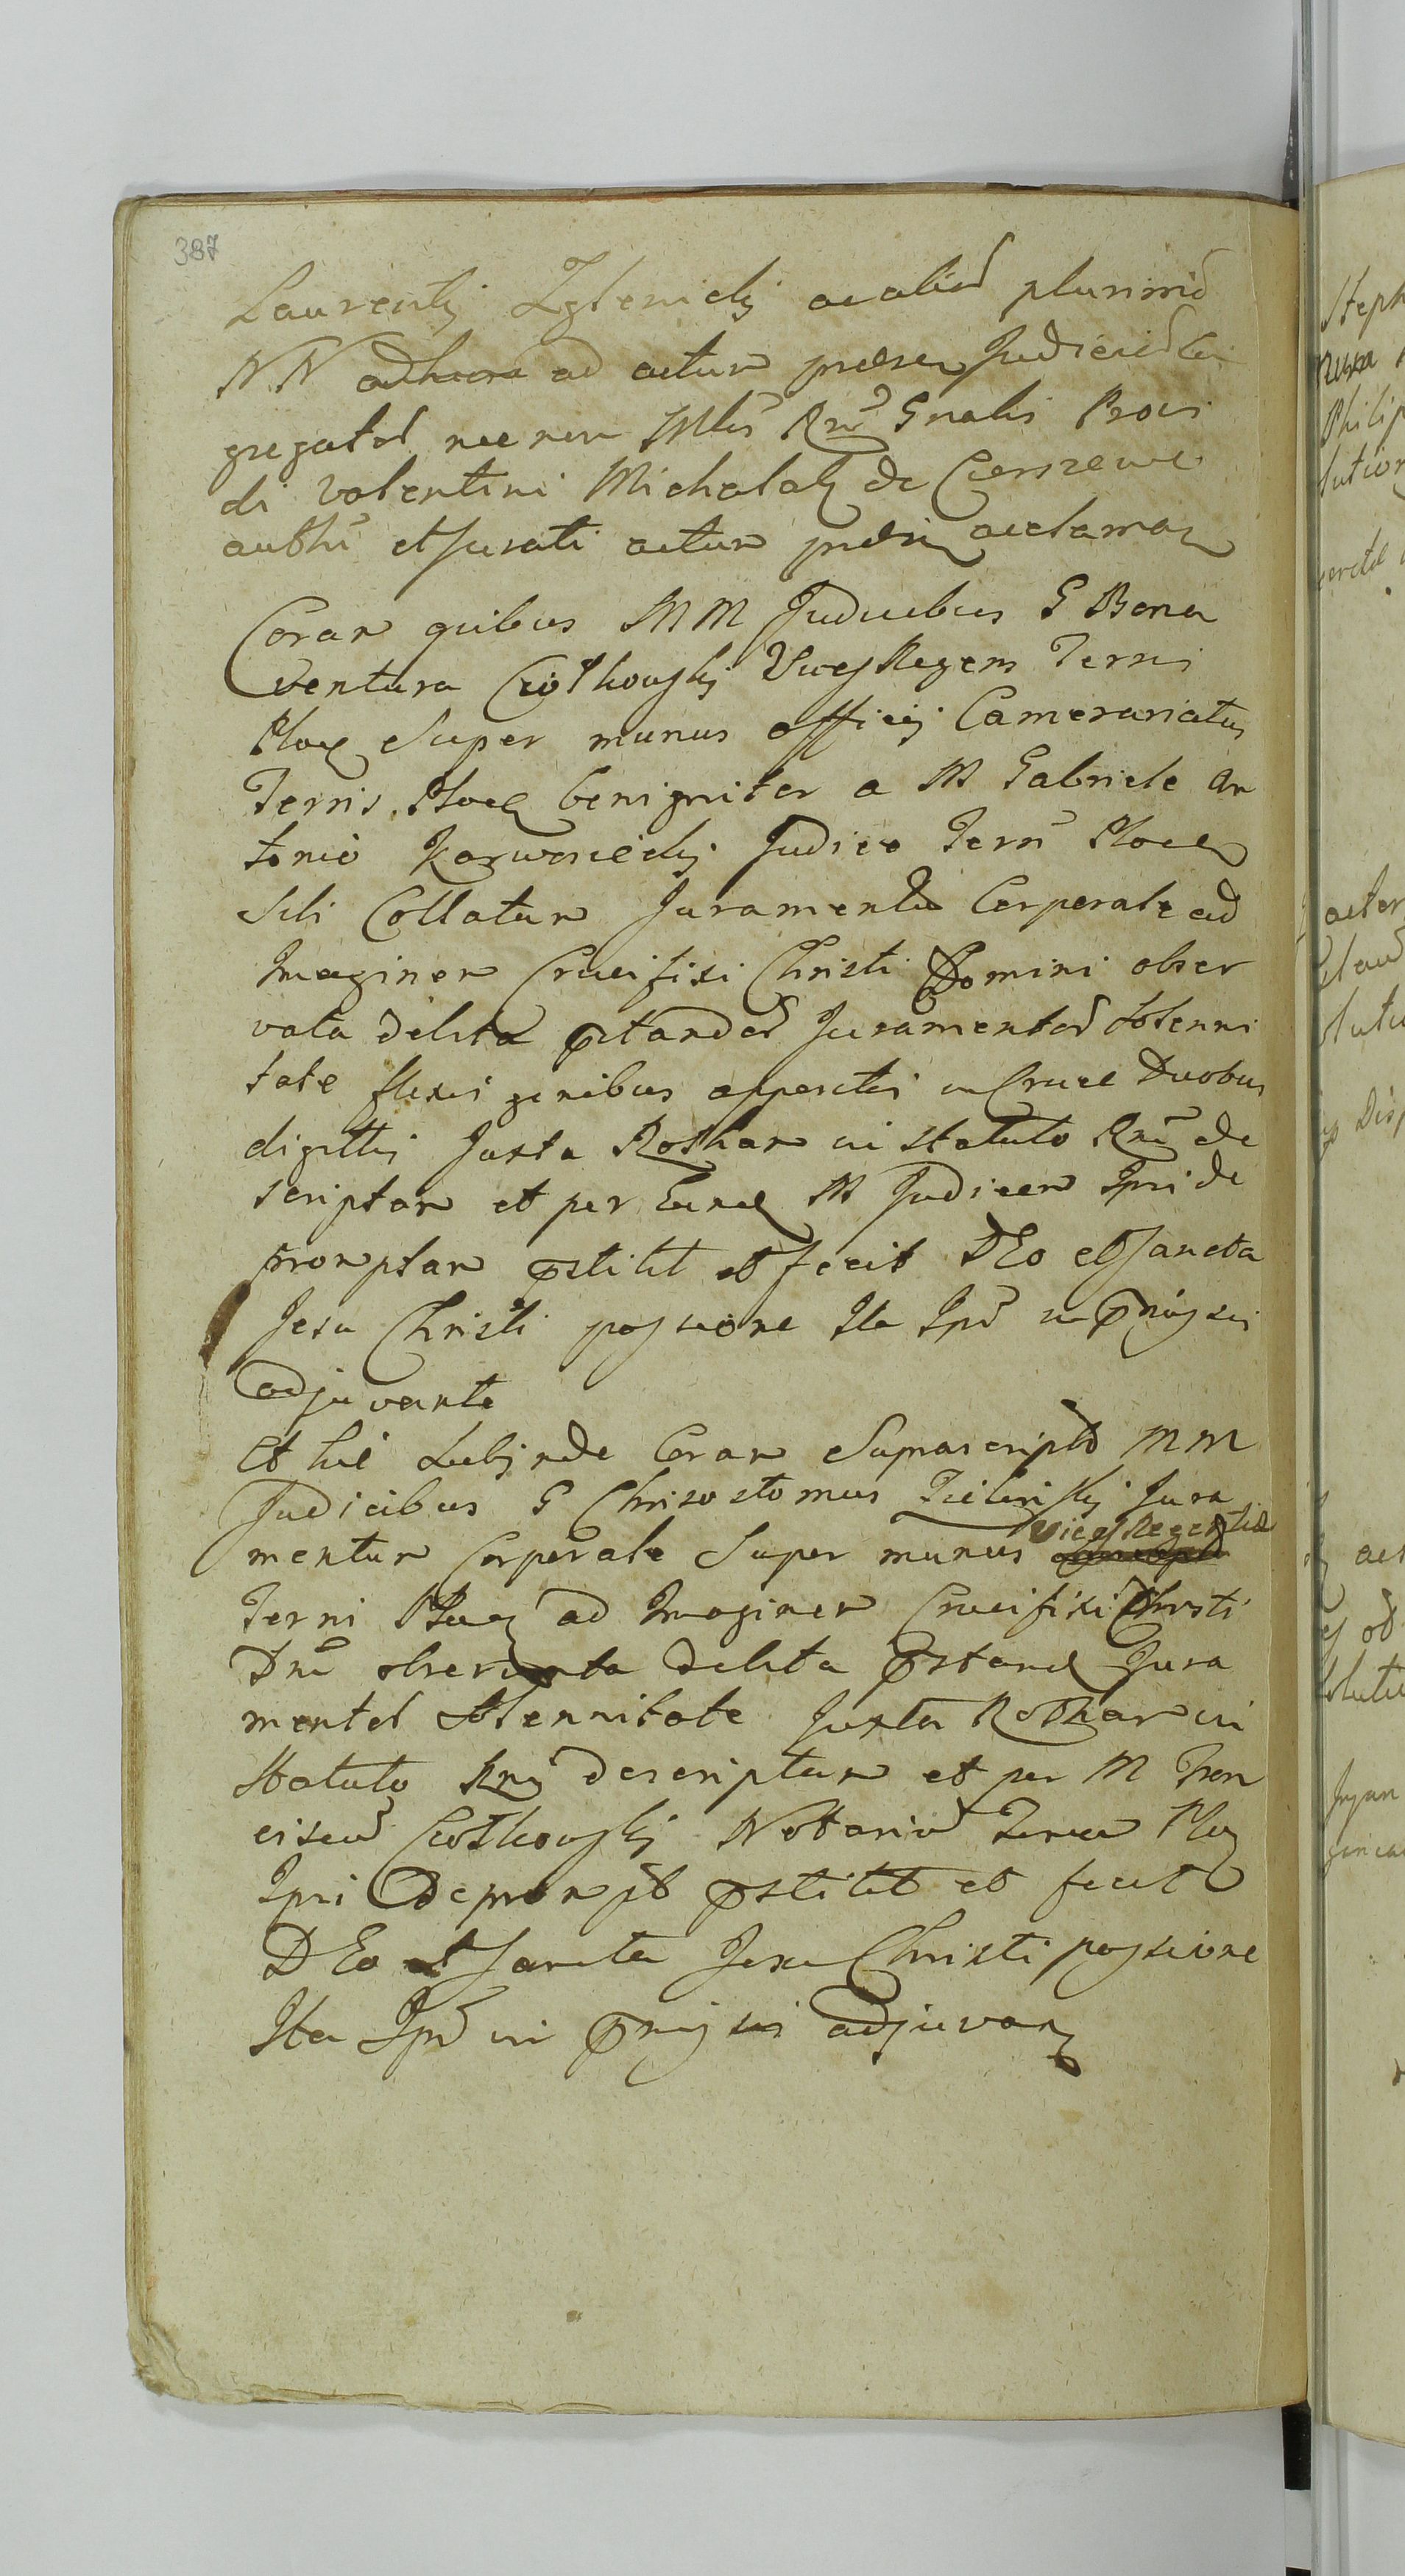 387
Laurentij Zglenicki ac aliod plurimod
NN adhucce ad actum praesen Judicialr
gregatod nec non Mtis Rnĩ Gnalis Provi
di Valentini Michalak de Cierszewo
authi et Jurati actum praesen acclaman
Coram quibus MM Judicibus G Bona
ventura Ciołkowskj Vices Regens Terris
Ploc Super munus officij Camerariatus
Terris Ploc benigniter a M Gabriele An
tonio Karwosiecki Judice Terrĩ Ploce
Sibi Collatum Juramentũ Corporale ad
Imaginem Crucifixi Christi Domini obser
vata debita pstandod Juramentod Solenni
tate flexis genibus appositis in Cruce Duobus
digittis Juxta Rotham in statuto Rnĩ de
scriptam et per Eund M Judicem Ipsi de
promptam pstitit et fecit DEo et Sancta
Jesu Christi passione Ita Ipš in pmis sui
adjuvante
Et hic Subinde Coram Suprascriptod MM
Judicibus G Chrisostomus Zielinskj Jura
mentum Corporale Super munus Vices Regentiae
Terris Ploc ad Imaginem Crucifixi Christi
Dnĩ observata debita pstand Jura
mentod Solennitate Juxta Rotham in
Statuto Rnĩ descriptam et per M Fran
ciscũ Ciołkowskj Notariũ Terrae Ploc
Ipsi Deprompt pstitit et fecit
DEo et Sancta Jesu Christi passione
Ita Ipš in pmis sui adjuvan